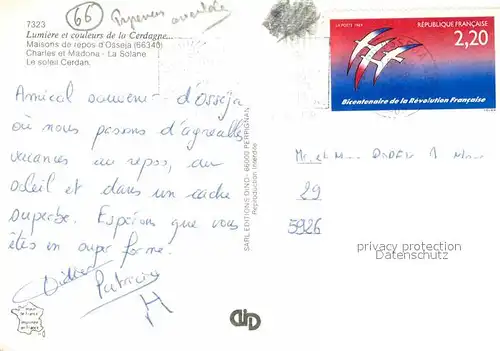 66
Pyrénées orientales
7323
Lumière et couleurs de la Cerdagne...
Maisons de repos d'Osséja (66340)
Charles et Madona - La Solane
Le soleil Cerdan.
LA POSTE 1989
RÉPUBLIQUE FRANÇAISE
2,20
Bicentenaire de la Révolution Française
Amical souvenir d'Osséja
où nous passons d'agréables
vacances au repos, au
soleil et dans un cadre
superbe. Espérons que vous
êtes en super forme.
Patricia
SARL EDITIONS DINO - 66002 PERPIGNAN
Reproduction Interdite
Mr et Mme
29
5926
privacy protection
Datenschutz